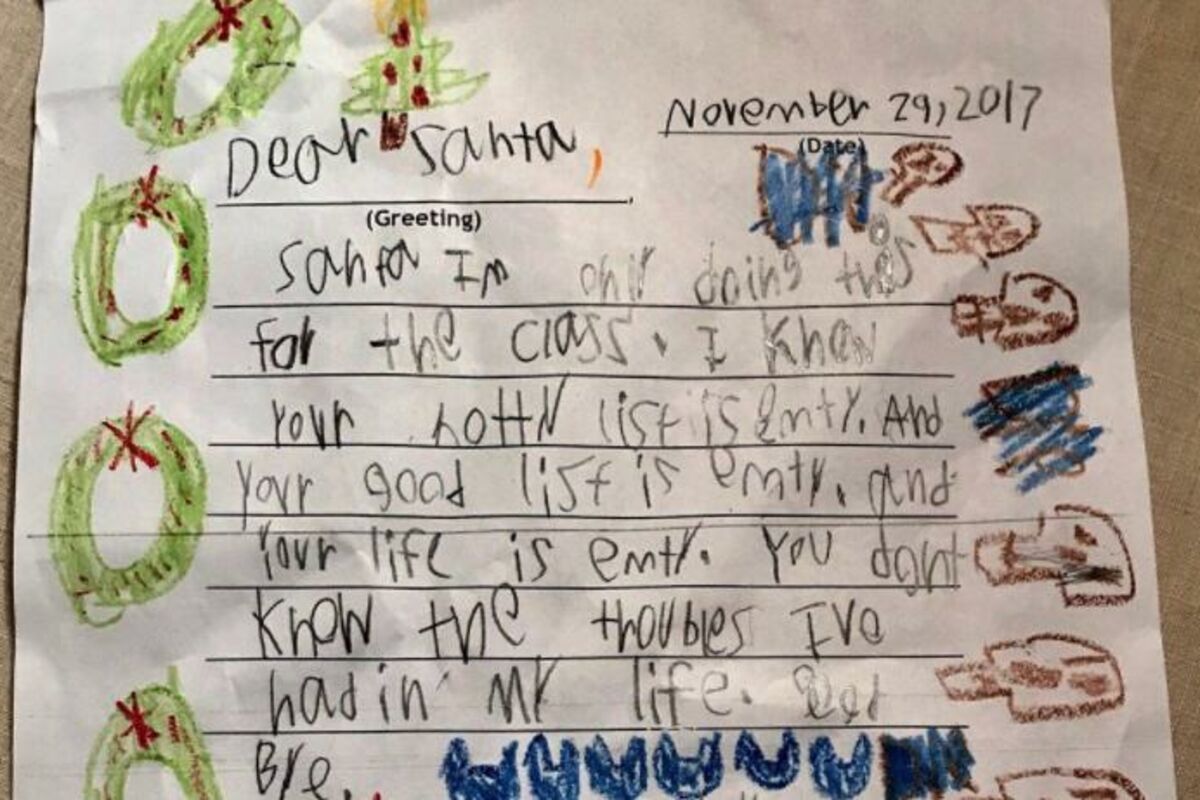 November 29, 2017
(Date)
Dear Santa,
(Greeting)
Santa Im only doing this
for the class. I know
your notty list is emty. And
your good list is emty. and
your life is emty. You dont
know the troubles Ive
had in my life. Good
Bye.